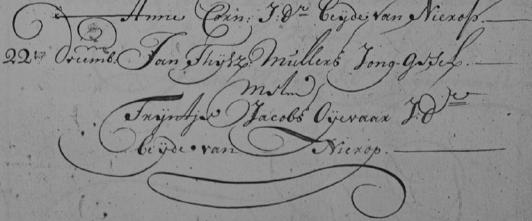 Anne Corn: J:dr beyde van Nierop.
22en Decemb. Jan Thijsz Mullers Jong-Gesel
met
Trijntje Jacobs Oyevaar J:dre
beyde van Nierop